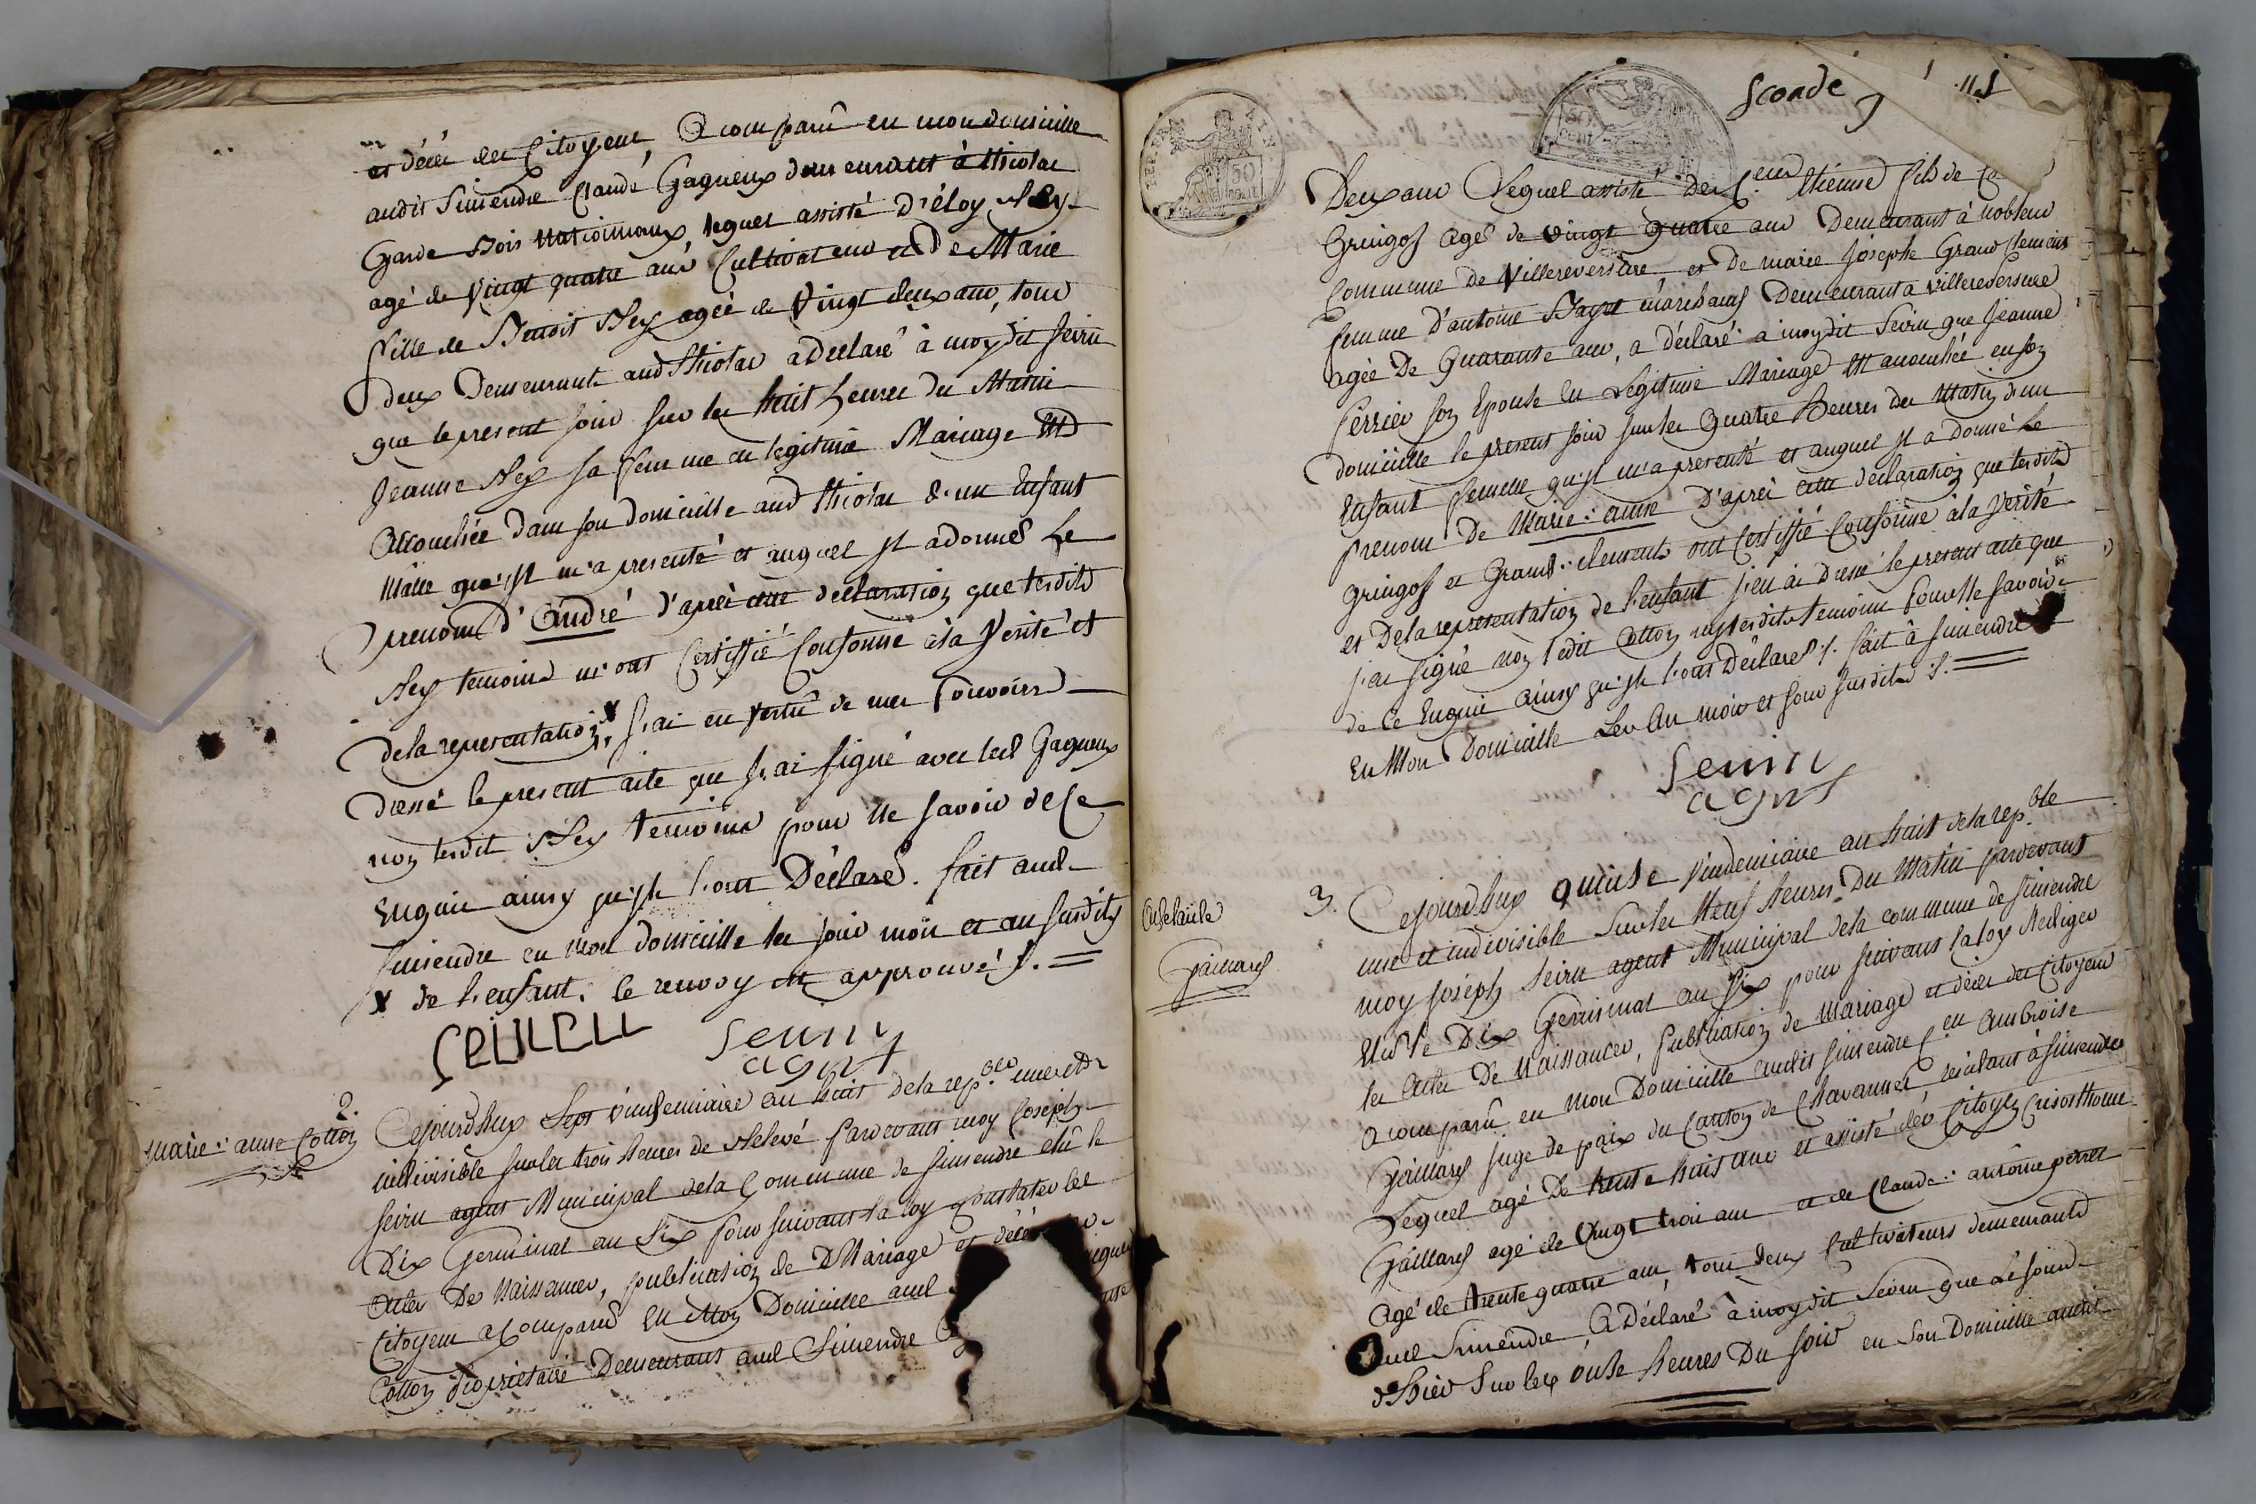 et décès des Citoyens, a comparû en mon domicille
audit Simendre Claude Gagneux demeurant à thiolar
Garde Bois nationnaux, lequel assisté d'éloy Ney
agé de Vingt quatre ans Cultivateur et De Marie
fille de Benoit Ney agée de Vingt deux ans, tous
deux Demeurants aud Thiolar a Déclaré à moydit seirn
que le present jour sur les huit heures du Matin
Jeanne Ney sa femme en legitime Mariage Est
accouchée dans son domicille aud thiolar d'un Enfant
Mâlle qu'jl m'a presenté et auquel jl a donné Le
prenom d'André d'après cette declaration que lesdits
Ney temoins m'ont Certiffié Conforme à la Verité et
de la representation x, j'ai en vertû de mes pouvoirs
dressé le present acte que j'ai signé avec led Gagneux
non lesdit Ney temoins pour ne savoir de ce
Enquis ainsy qu'jls l'ont Déclaré. fait aud
Simendre en mon domicille les jour mois et an susdits
x de l'enfant. le renvoy est approuvé ./. =
seirn
agnt
2.
marie : anne Cotton
Cejourd'huy Sept vendemiaire an huit de la rep.que une et
indivisible sur les trois heures de Relevé pardevant moy Joseph
seirn agent Municipal de la Commune de Simendre elû le
Dix Germinal an Six pour suivant la loy Constater les
actes De Naissances, publication de Mariage et décès
Citoyens a Comparû En Mon Domicille aud
Cotton propriétaire Demeurant aud Simendre
seconde
115
Deux ans Lequel assisté des C.ens Etienne fils de
Gringoz agé de vingt quatre ans Demeurant à Noblens
Commune de Villereversure et de marie Josephe Grand Clement
femme d'antoine Bayet marchand Demeurant a villereversure
agée De Quarante ans, a déclaré a moydit Seirn que Jeanne
Perrier son Epouse En Legitime Mariage Est accouchée en son
domicille le present jour sur les Quatre heures du Matin d'un
Enfant femelle qu'jl m'a presenté et auquel jl a donné Le
prenom De Marie : anne D'après cette declaration que lesdits
Gringoz et Grand : clement ont Certiffié Conforme à la Verité
et De la representation de l'enfant j'en ai dressé le present acte que
j'ai signé non ledit Cotton ny lesdits temoins pour Ne savoir
de Ce Enquis ainsy qu'jls l'ont Déclaré ./. fait à simendre
En Mon Domicille Les An mois et jour susdits ./. =
seirn
agnt
3.
adelaïde
Gaillard
Cejourd'huy quinse Vindemiaire an huit de la rep.ble
une et indivisible sur les Neuf heures Du Matin pardevant
moy joseph Seirn agent Municipal de la commune de Simendre
Elû le Dix Germinal an Six pour suivant la loy Rediger
les actes De Naissances, publication de Mariage et décès des Citoyens
a comparû en mon Domicille audit simendre C.en ambroise
Gaillard juge de paix du Canton de Chavannes residant à simendre
Lequel agé De trente huit ans et assisté des Citoyen Crisosthome
Gaillard agé de Vingt trois ans et de Claude : antoine perret
agé de trente quatre ans, tous deux Cultivateurs demeurants
aud Simendre, a Déclaré à moy dit Seirn que Le jour
d'hier sur les onse heures Du soir en son Domicille audit